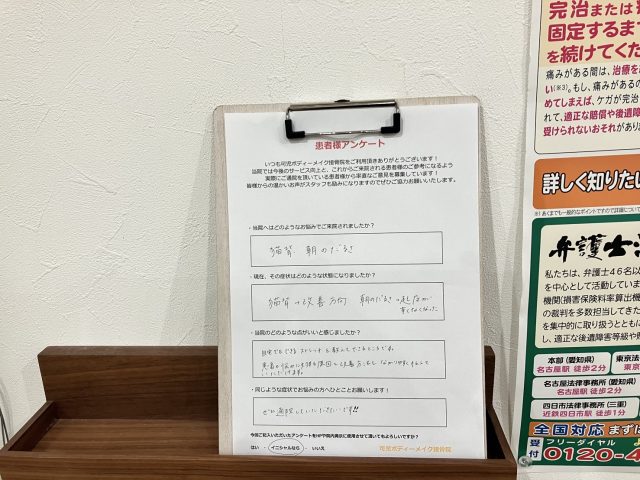 患者様アンケート
いつも可児ボディーメイク接骨院をご利用頂きありがとうございます！
当院では今後のサービス向上と、これからご来院される患者様のご参考になるよう
実際にご通院を頂いている患者様から率直なご意見を募集しています！
皆様からの温かいお声がスタッフも励みになりますのでぜひご協力お願いいたします。
・当院へはどのようなお悩みでご来院されましたか？
猫背 朝のだるさ
・現在、その症状はどのような状態になりましたか？
猫背→改善方向 朝のだるさ→起床が
辛くなくなった
・当院のどのような点がいいと感じましたか？
自宅でもできるストレッチを教えて
・同じような症状でお悩みの方へひとことお願いします！
ぜひ通院していただきたいです!!
今回ご記入いただいたアンケートをHPや院内掲示に使用させて頂いてもよろしいですか？
はい ・ イニシャルなら ・ いいえ
可児ボディーメイク接骨院
完治または
固定するまで
を続けてくだ
痛みがある間は、治療を
い(※3)。もし、痛みがあるの
めてしまえば、ケガが完治
れて、適正な賠償や後遺障
受けられないおそれがありま
詳しく知りたい
※あくまでも一般的なポイントですので詳細について
弁護士
私たちは、弁護士46名以
を中心として活動していま
機関(損害保険料率算出機
の裁判を多数担当してきた
を集中的に取り扱うととも
し、適正な後遺障害等級や
本部(愛知県)
名古屋駅 徒歩2分
東京法
東京
名古屋法律事務所(愛知県)
名古屋駅 徒歩2分
四日市法律事務所(三重)
近鉄四日市駅 徒歩1分
全国対応 まずは
受付
フリーダイヤル
0120-4